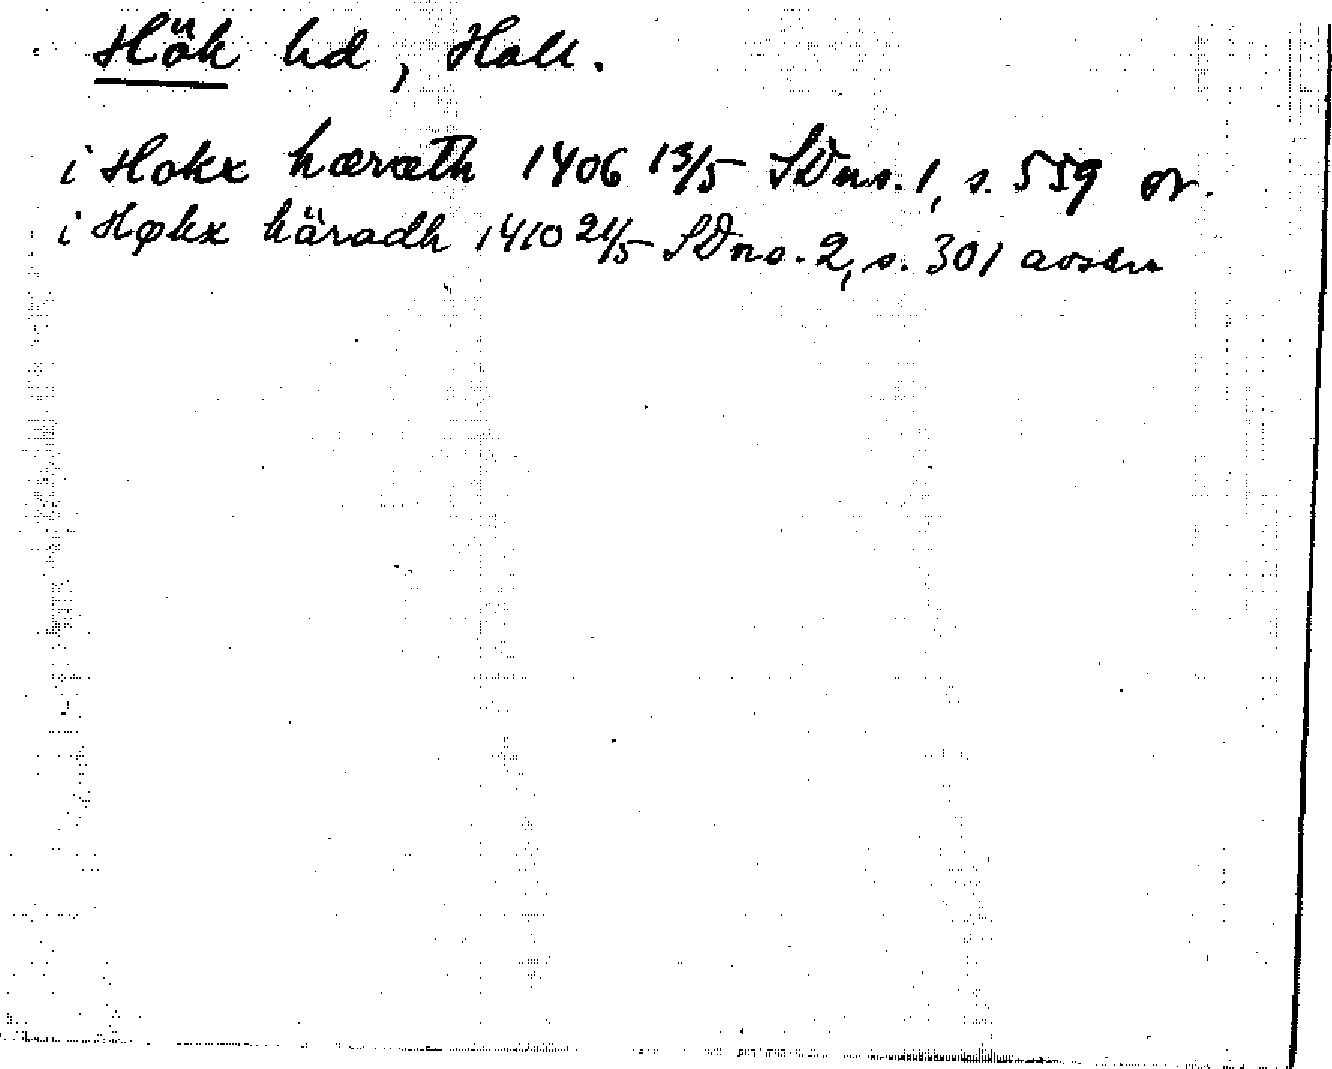 Hök hd, Hall.
i Hokx hæræth 1406 13/5 SDns. 1, s. 559 or.
i Høkx häradh 1410 21/5 SDns. 2, s. 301 avskr